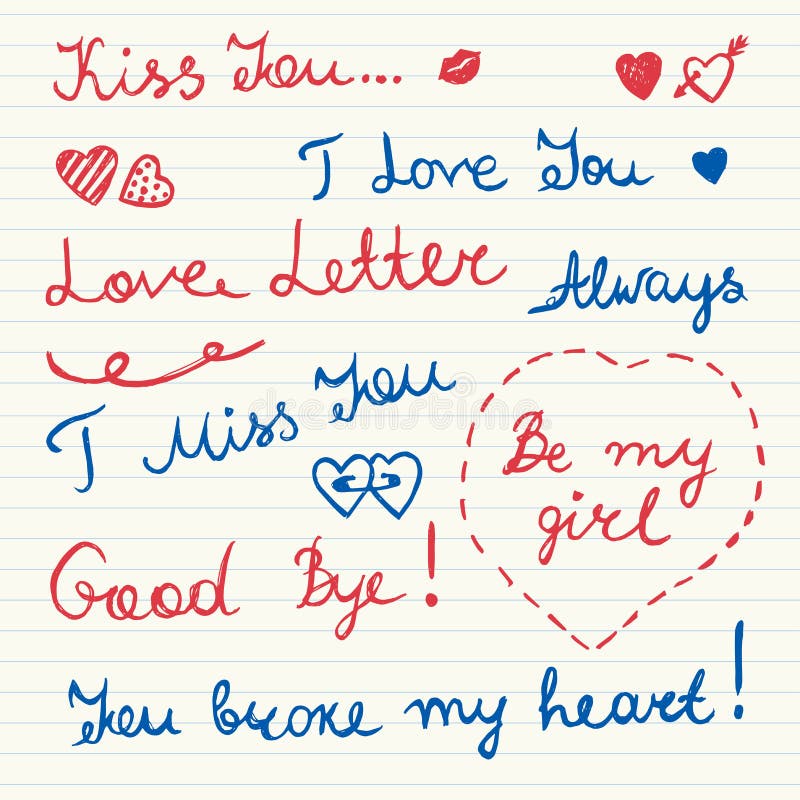 Kiss You...
I Love You
Love Letter
Always
I Miss You
Be my
girl
Good Bye!
You broke my heart!